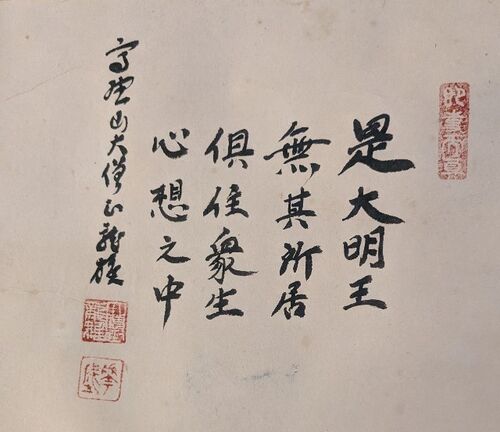 是大明王
無其所居
俱住衆生
心想之中
高野山大僧正龍